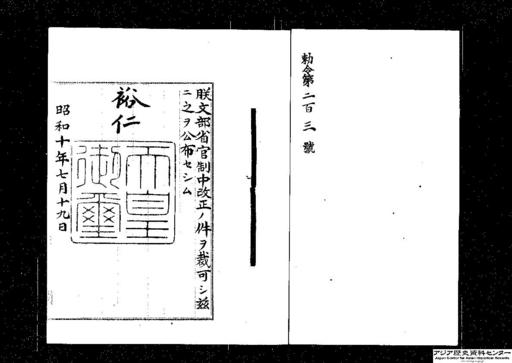 勅令第二百三號
朕文部省官制中改正ノ件ヲ裁可シ茲
ニ之ヲ公布セシム
裕仁
天皇
御璽
昭和十年七月十九日
アジア歴史資料センター
Japan Center for Asian Historical Records